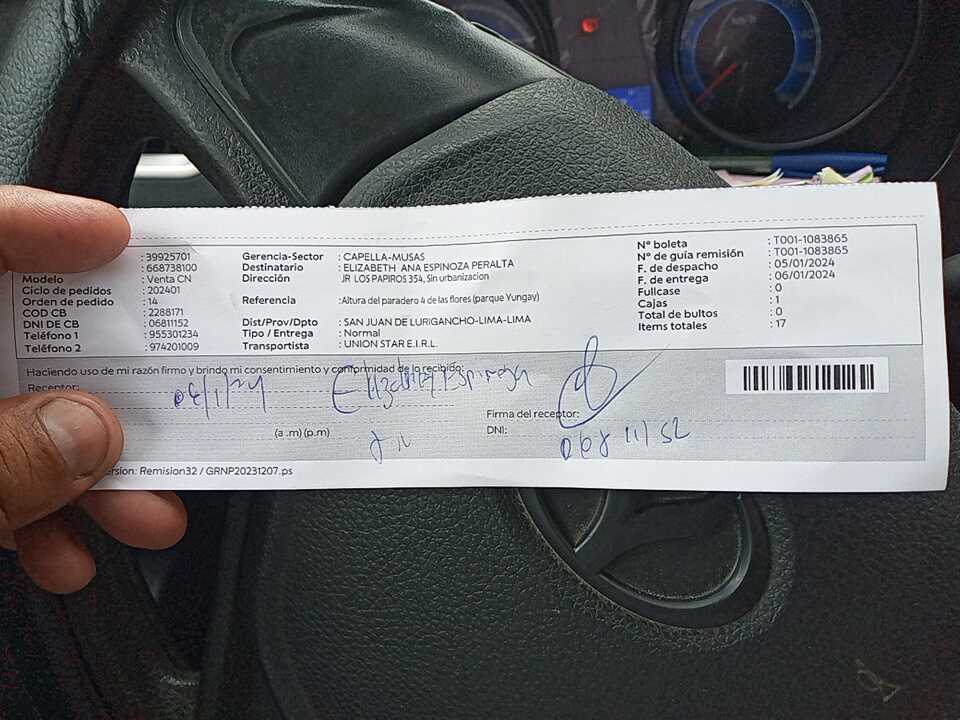 : 39925701 Gerencia-Sector : CAPELLA-MUSAS Nº boleta : T001-1083865
: 668738100 Destinatario : ELIZABETH ANA ESPINOZA PERALTA Nº de guía remisión : T001-1083865
Modelo : Venta CN Dirección JR LOS PAPIROS 354, Sin urbanizacion F. de despacho : 05/01/2024
Ciclo de pedidos : 202401 F. de entrega : 06/01/2024
Orden de pedido : 14 Referencia :Altura del paradero 4 de las flores (parque Yungay) Fullcase : 0
COD CB : 2288171 Cajas : 1
DNI DE CB : 06811152 Dist/Prov/Dpto : SAN JUAN DE LURIGANCHO-LIMA-LIMA Total de bultos : 0
Teléfono 1 : 955301234 Tipo / Entrega : Normal Items totales : 17
Teléfono 2 : 974201009 Transportista : UNION STAR E.I.R.L.
Haciendo uso de mi razón firmo y brindo mi consentimiento y conformidad de lo recibido:
Receptor:
06/1/24 Elizabeth Espinoza
Firma del receptor:
(a .m) (p.m) DNI: 068 111 52
ersion: Remision32 / GRNP20231207.ps